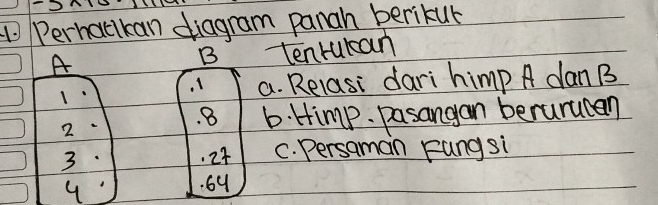 4. Perhatikan diagram panah berikut
A B Tentukan
1 . . 1 a. Relasi dari himp A dan B
2 . . 8 b. Himp. pasangan berurutan
3 . . 27 c. Persaman Fungsi
4 . . 64